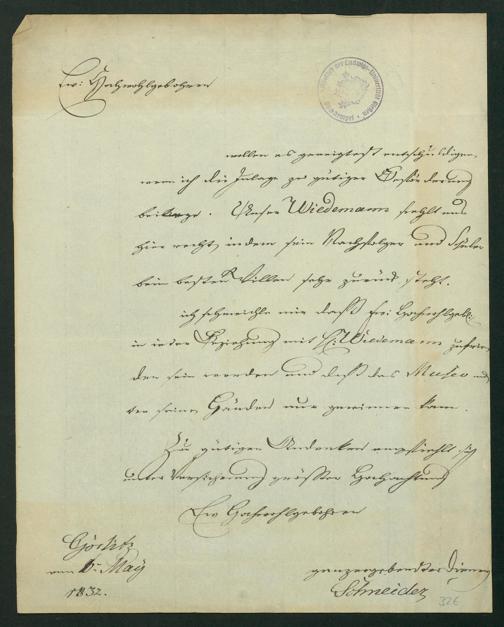 Ew: Hochwohlgebohren
wollen es geneigtest entschuldigen,
wenn ich die Zulage zu gütiger Beförderung
beilege. Unser Wiedemann fehlt uns
hier recht, indem sein Nachfolger und Schüler
beim besten Willen sehr zurück steht.
ich schmeichle mir daß
in jeder Beziehung mit H. Wiedemann zufrie-
den sein werden und daß das Museo un-
ter seinen Händen nur gewinnen kann.
Zu gütigem Andenken empfiehlt sich
unter Versicherung größter Hochachtung
Ew Hochwohlgebohren
Görlitz
am 6n May
1832.
ganzergebenster Diener
Schneider
326